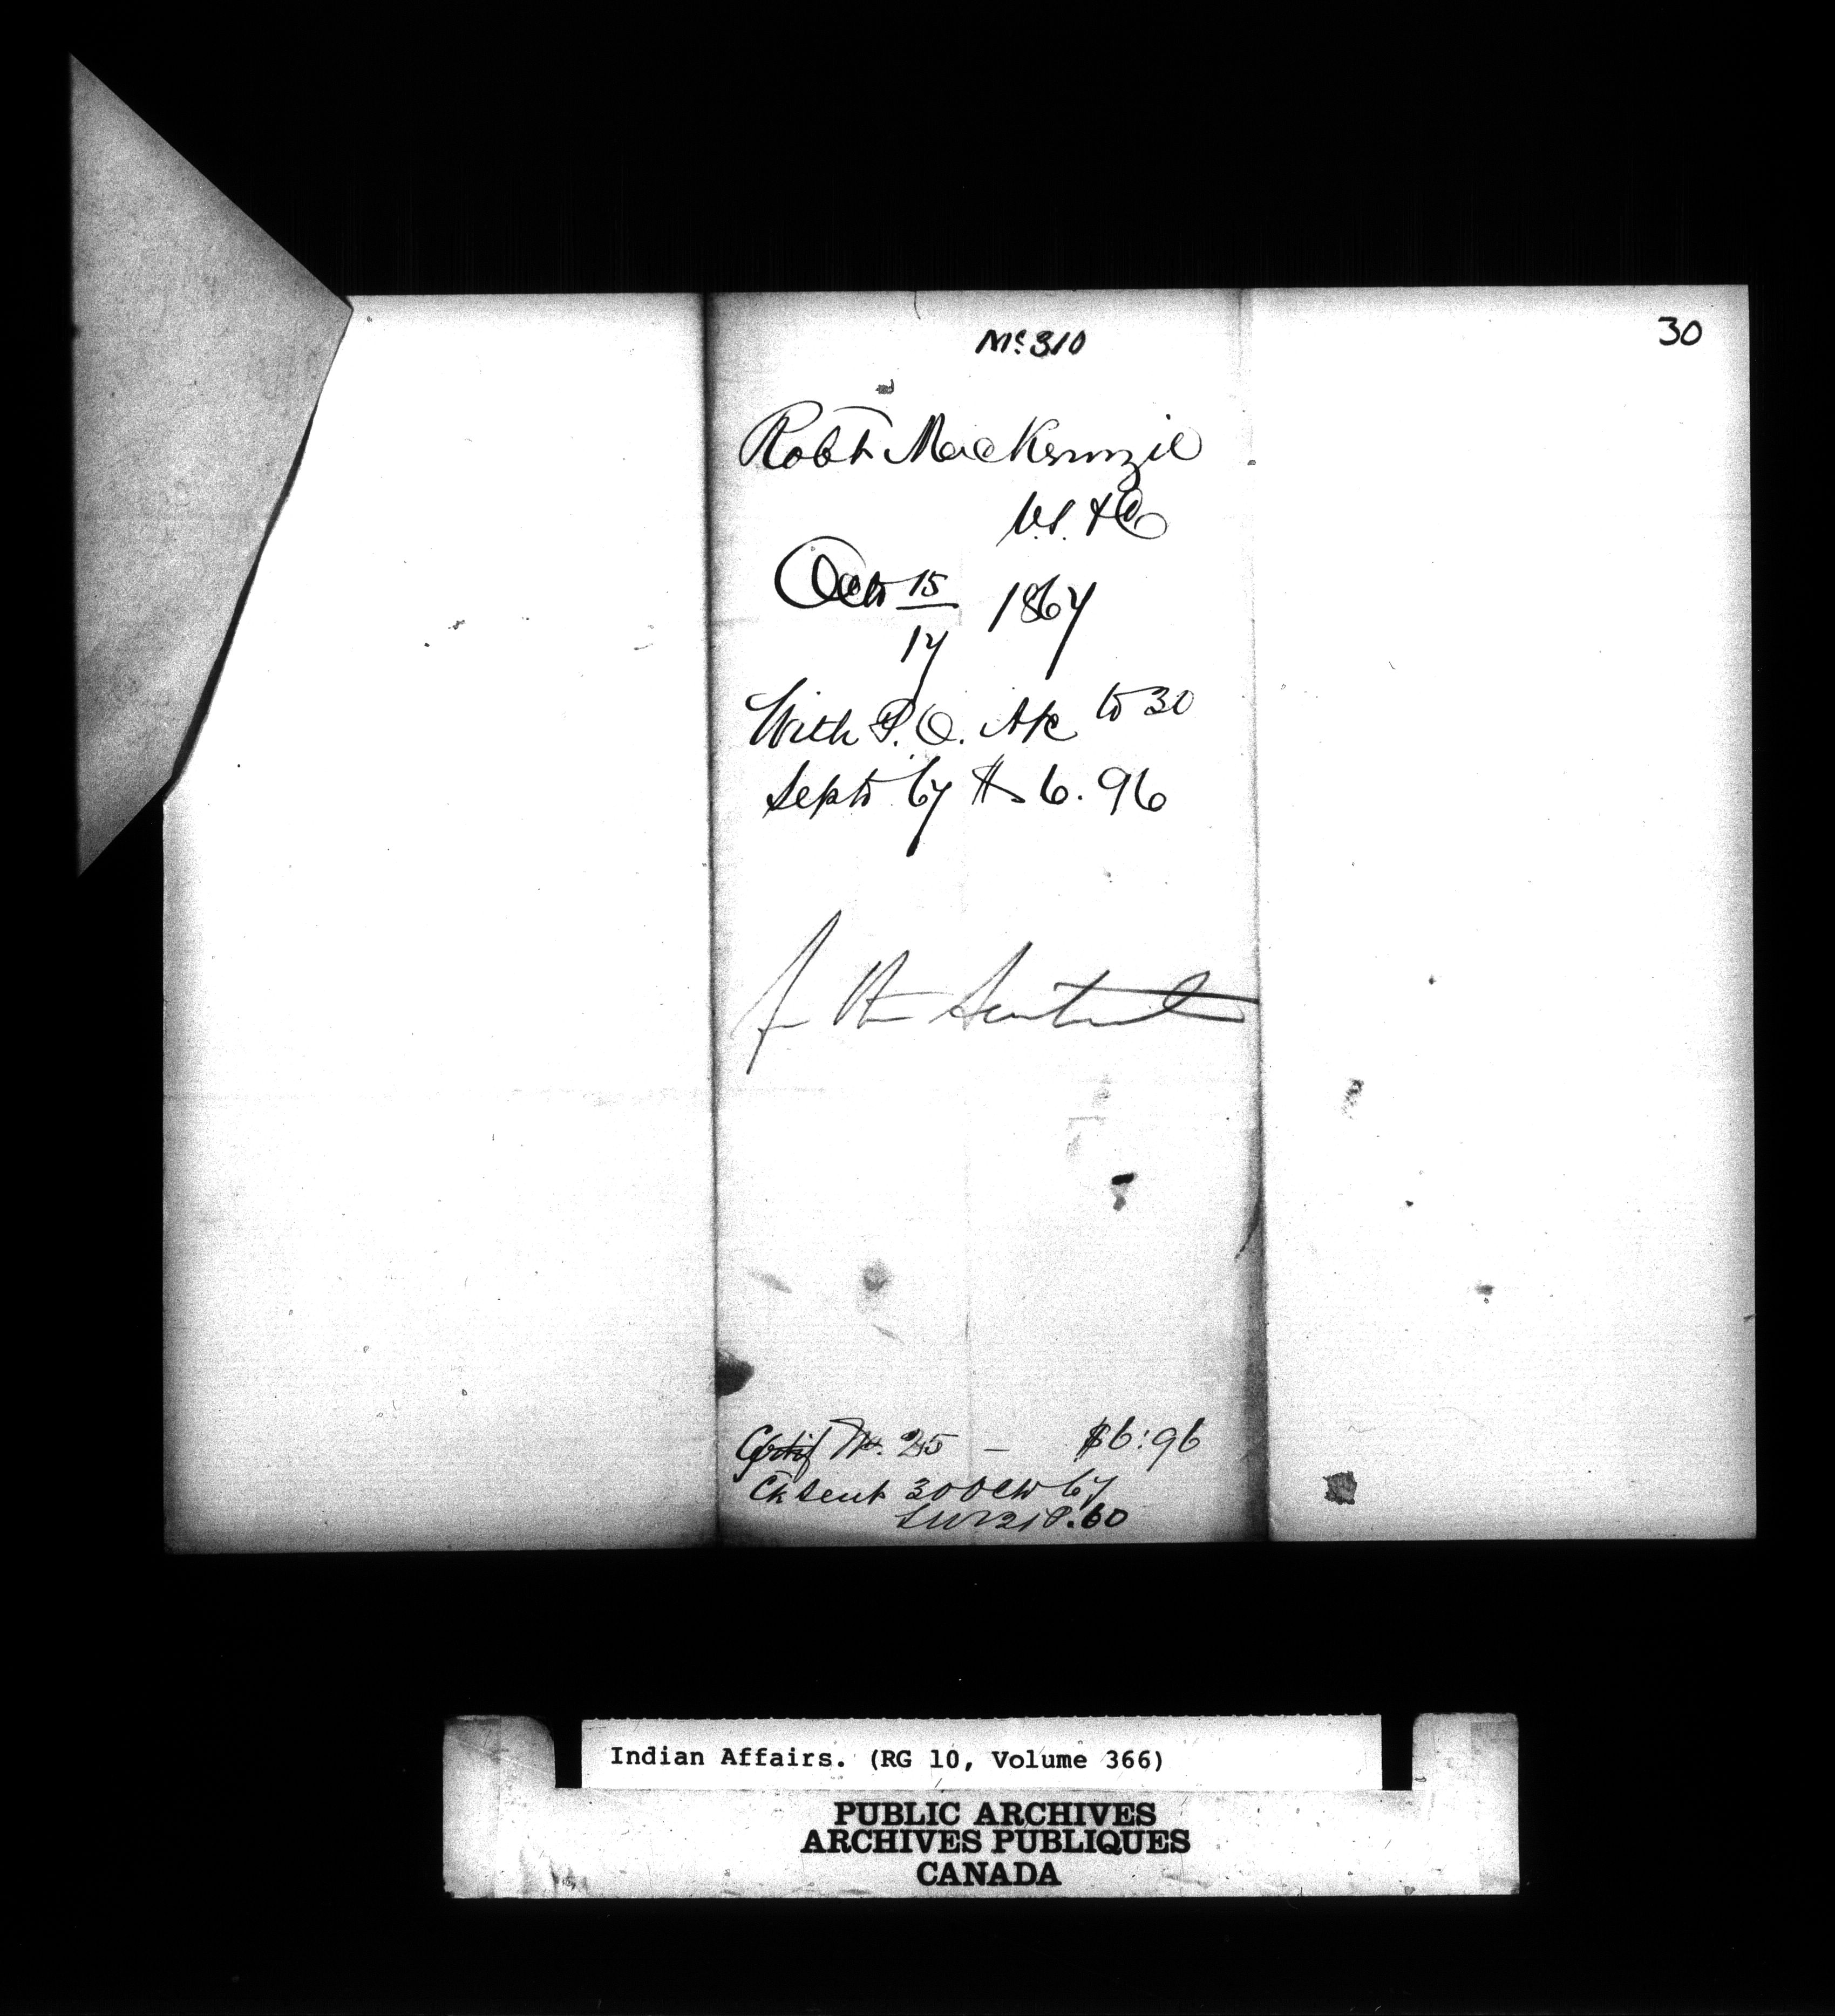 Mc 310
30
Robt MacKenzie
Octr 15/17 1867
With P.O. A/c to 30
Septr 67 $ 6.96
Certif No. 25 — $6:96
Ck sent 30 Oct 67
Indian Affairs. (RG 10, Volume 366)
PUBLIC ARCHIVES
ARCHIVES PUBLIQUES
CANADA